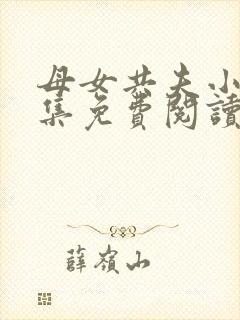 母女共夫小
集免費閱讀
薛嶺山